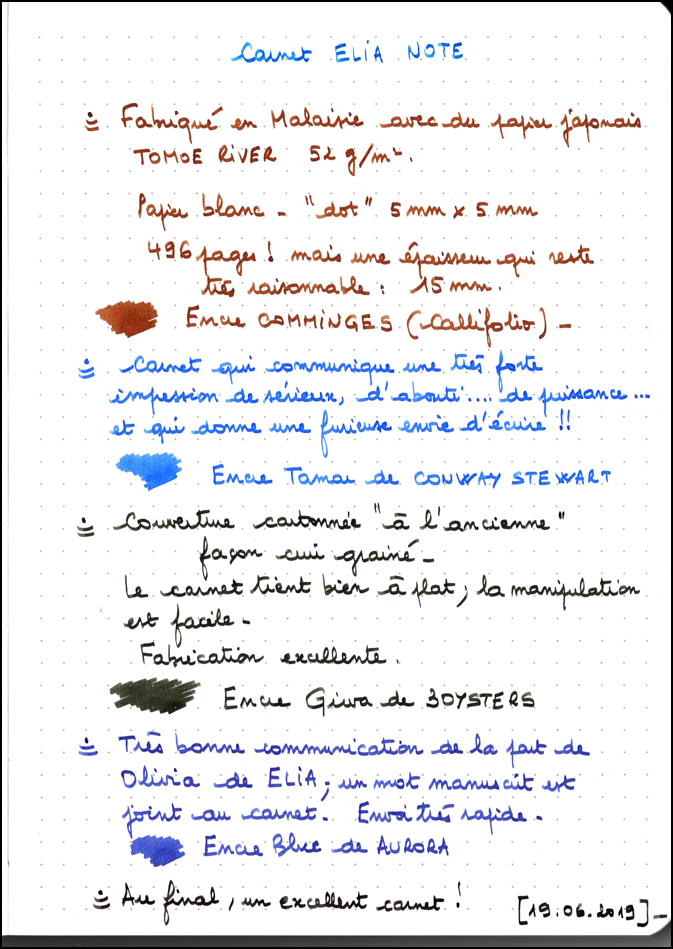 Carnet ELIA NOTE
Fabriqué en Malaisie avec du papier japonais
TOMOE RIVER 52 g/m².
Papier blanc - "dot" 5 mm x 5 mm
496 pages ! mais une épaisseur qui reste
très raisonnable : 15 mm.
Encre COMMINGES (Callifolio) -
Carnet qui communique une très forte
impression de sérieux, d'abouti .... de puissance ...
et qui donne une furieuse envie d'écrire !!
Encre Tamar de CONWAY STEWART
Couverture cartonnée "à l'ancienne"
façon cuir grainé -
Le carnet tient bien à plat ; la manipulation
est facile -
Fabrication excellente .
Encre Giwa de 3OYSTERS
Très bonne communication de la part de
Olivia de ELIA ; un mot manuscrit est
joint au carnet. Envoi très rapide -
Encre Blue de AURORA
Au final , un excellent carnet !
[19.06.2019] -